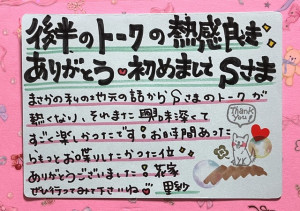 後半のトークの熱感良き
ありがとう♥初めましてSさま
まさかの私の地元の話からSさまのトークが
熱くなり、それまた興味深くて
すごく楽しかったです!お時間あった
らもっとお喋りしたかった位!!
ありがとうございました!花家
ぜひ行ってみて下さいね♡ 里紗
Thank you!